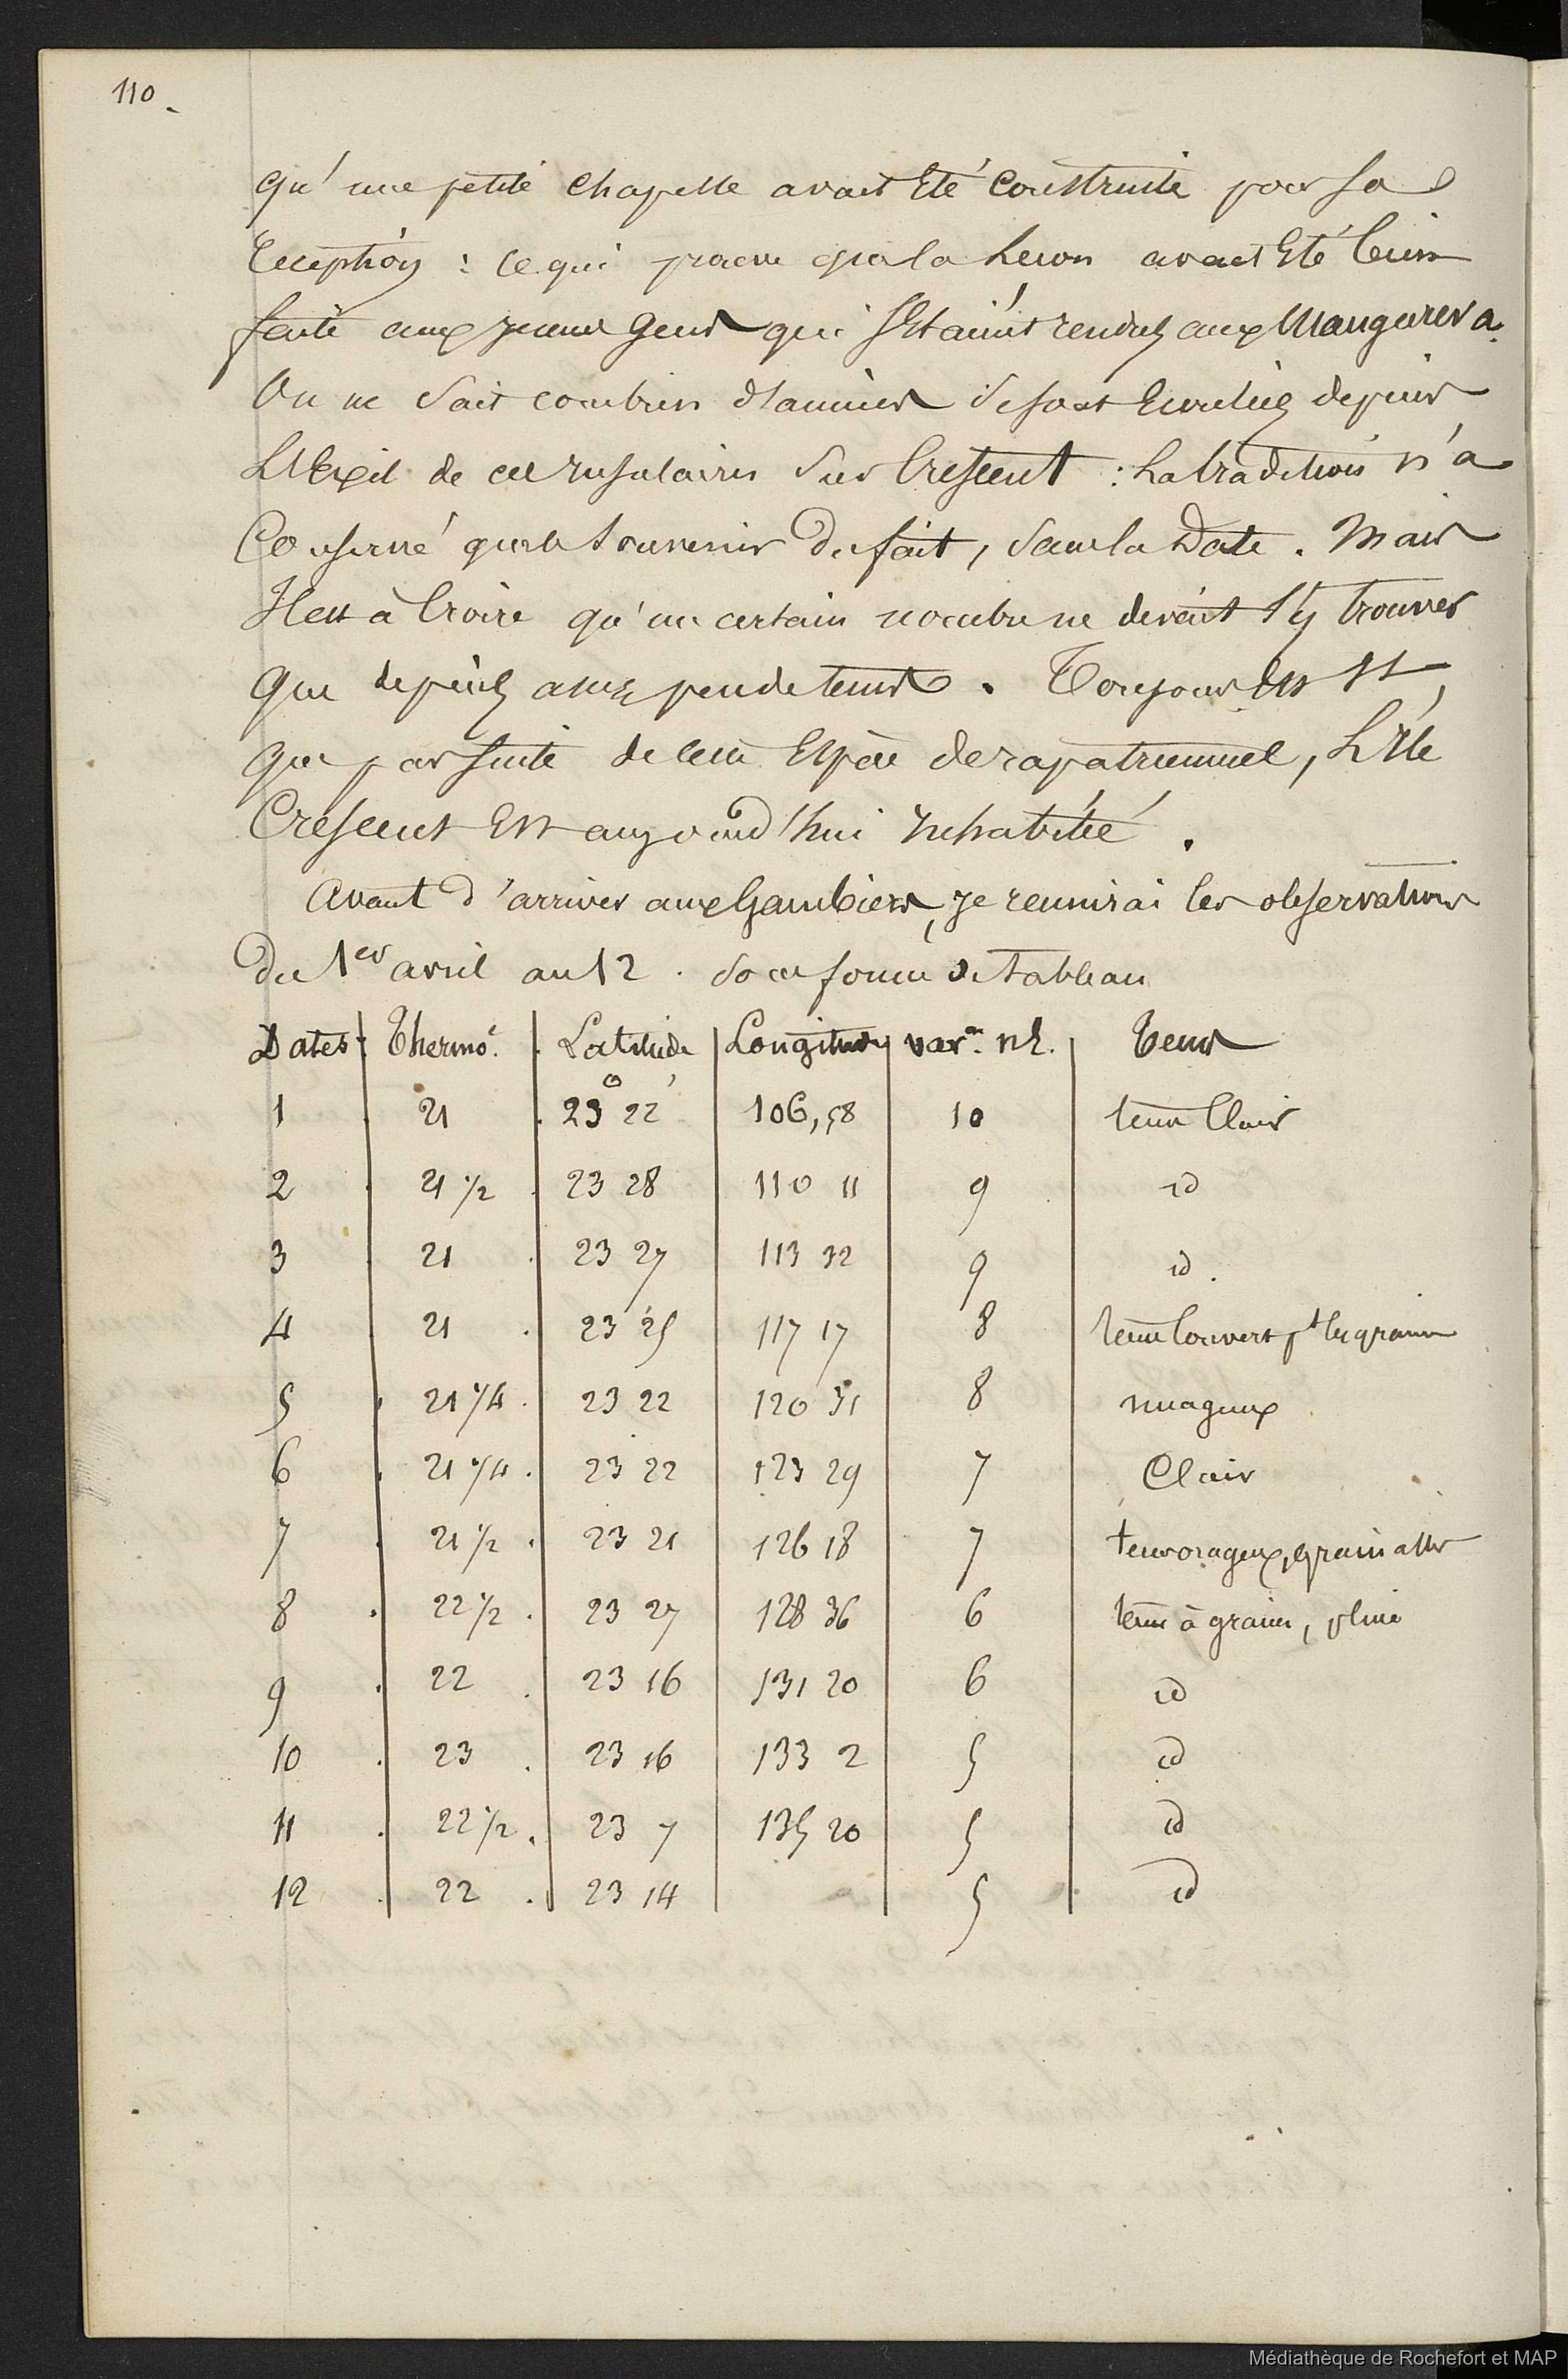 110
qu'une petite chapelle avait été construite pour sa
reception : ce qui prouve que la leçon avait été bien
faite aux jeunes gens qui s'étaient rendus aux Mangareva.
On ne sait combien d'années se sont écoulées depuis
L'exil de ces insulaires sur Crescent : La tradition n'a
Conservé que le souvenir du fait, sans la Date. Mais
Il est à Croire qu'un certain nombre ne devait s'y trouver
que depuis assez peu de tems. Toujours est il,
que par suite de cette Espèce de rapatriement, L'île
Crescent Est aujourd'hui inhabitée.
Avant d'arriver aux Gambiers, je reunirai les observations
du 1er avril au 12. sous forme de tableau
Dates Thermo. Latitude Longitude varon n.E. Tems
1 21 23° 22' 106,58 10 tems Clair
2 21 1/2 23 28 110 11 9 id
3 21 23 27 113 32 9 id.
4 21 23 25 117 17 8 tems Couvert pt les grains
5 21 1/4 23 22 120 31 8 nuageux
6 21 1/4 23 22 123 29 7 Clair
7 21 1/2 23 21 126 18 7 tems orageux, grains
8 22 1/2 23 27 128 36 6 tems à grains, pluie
9 22 23 16 131 20 6 id
10 23 23 16 133 2 5 id
11 22 1/2 23 7 135 20 5 id
12 22 23 14 5 id
Médiathèque de Rochefort et MAP